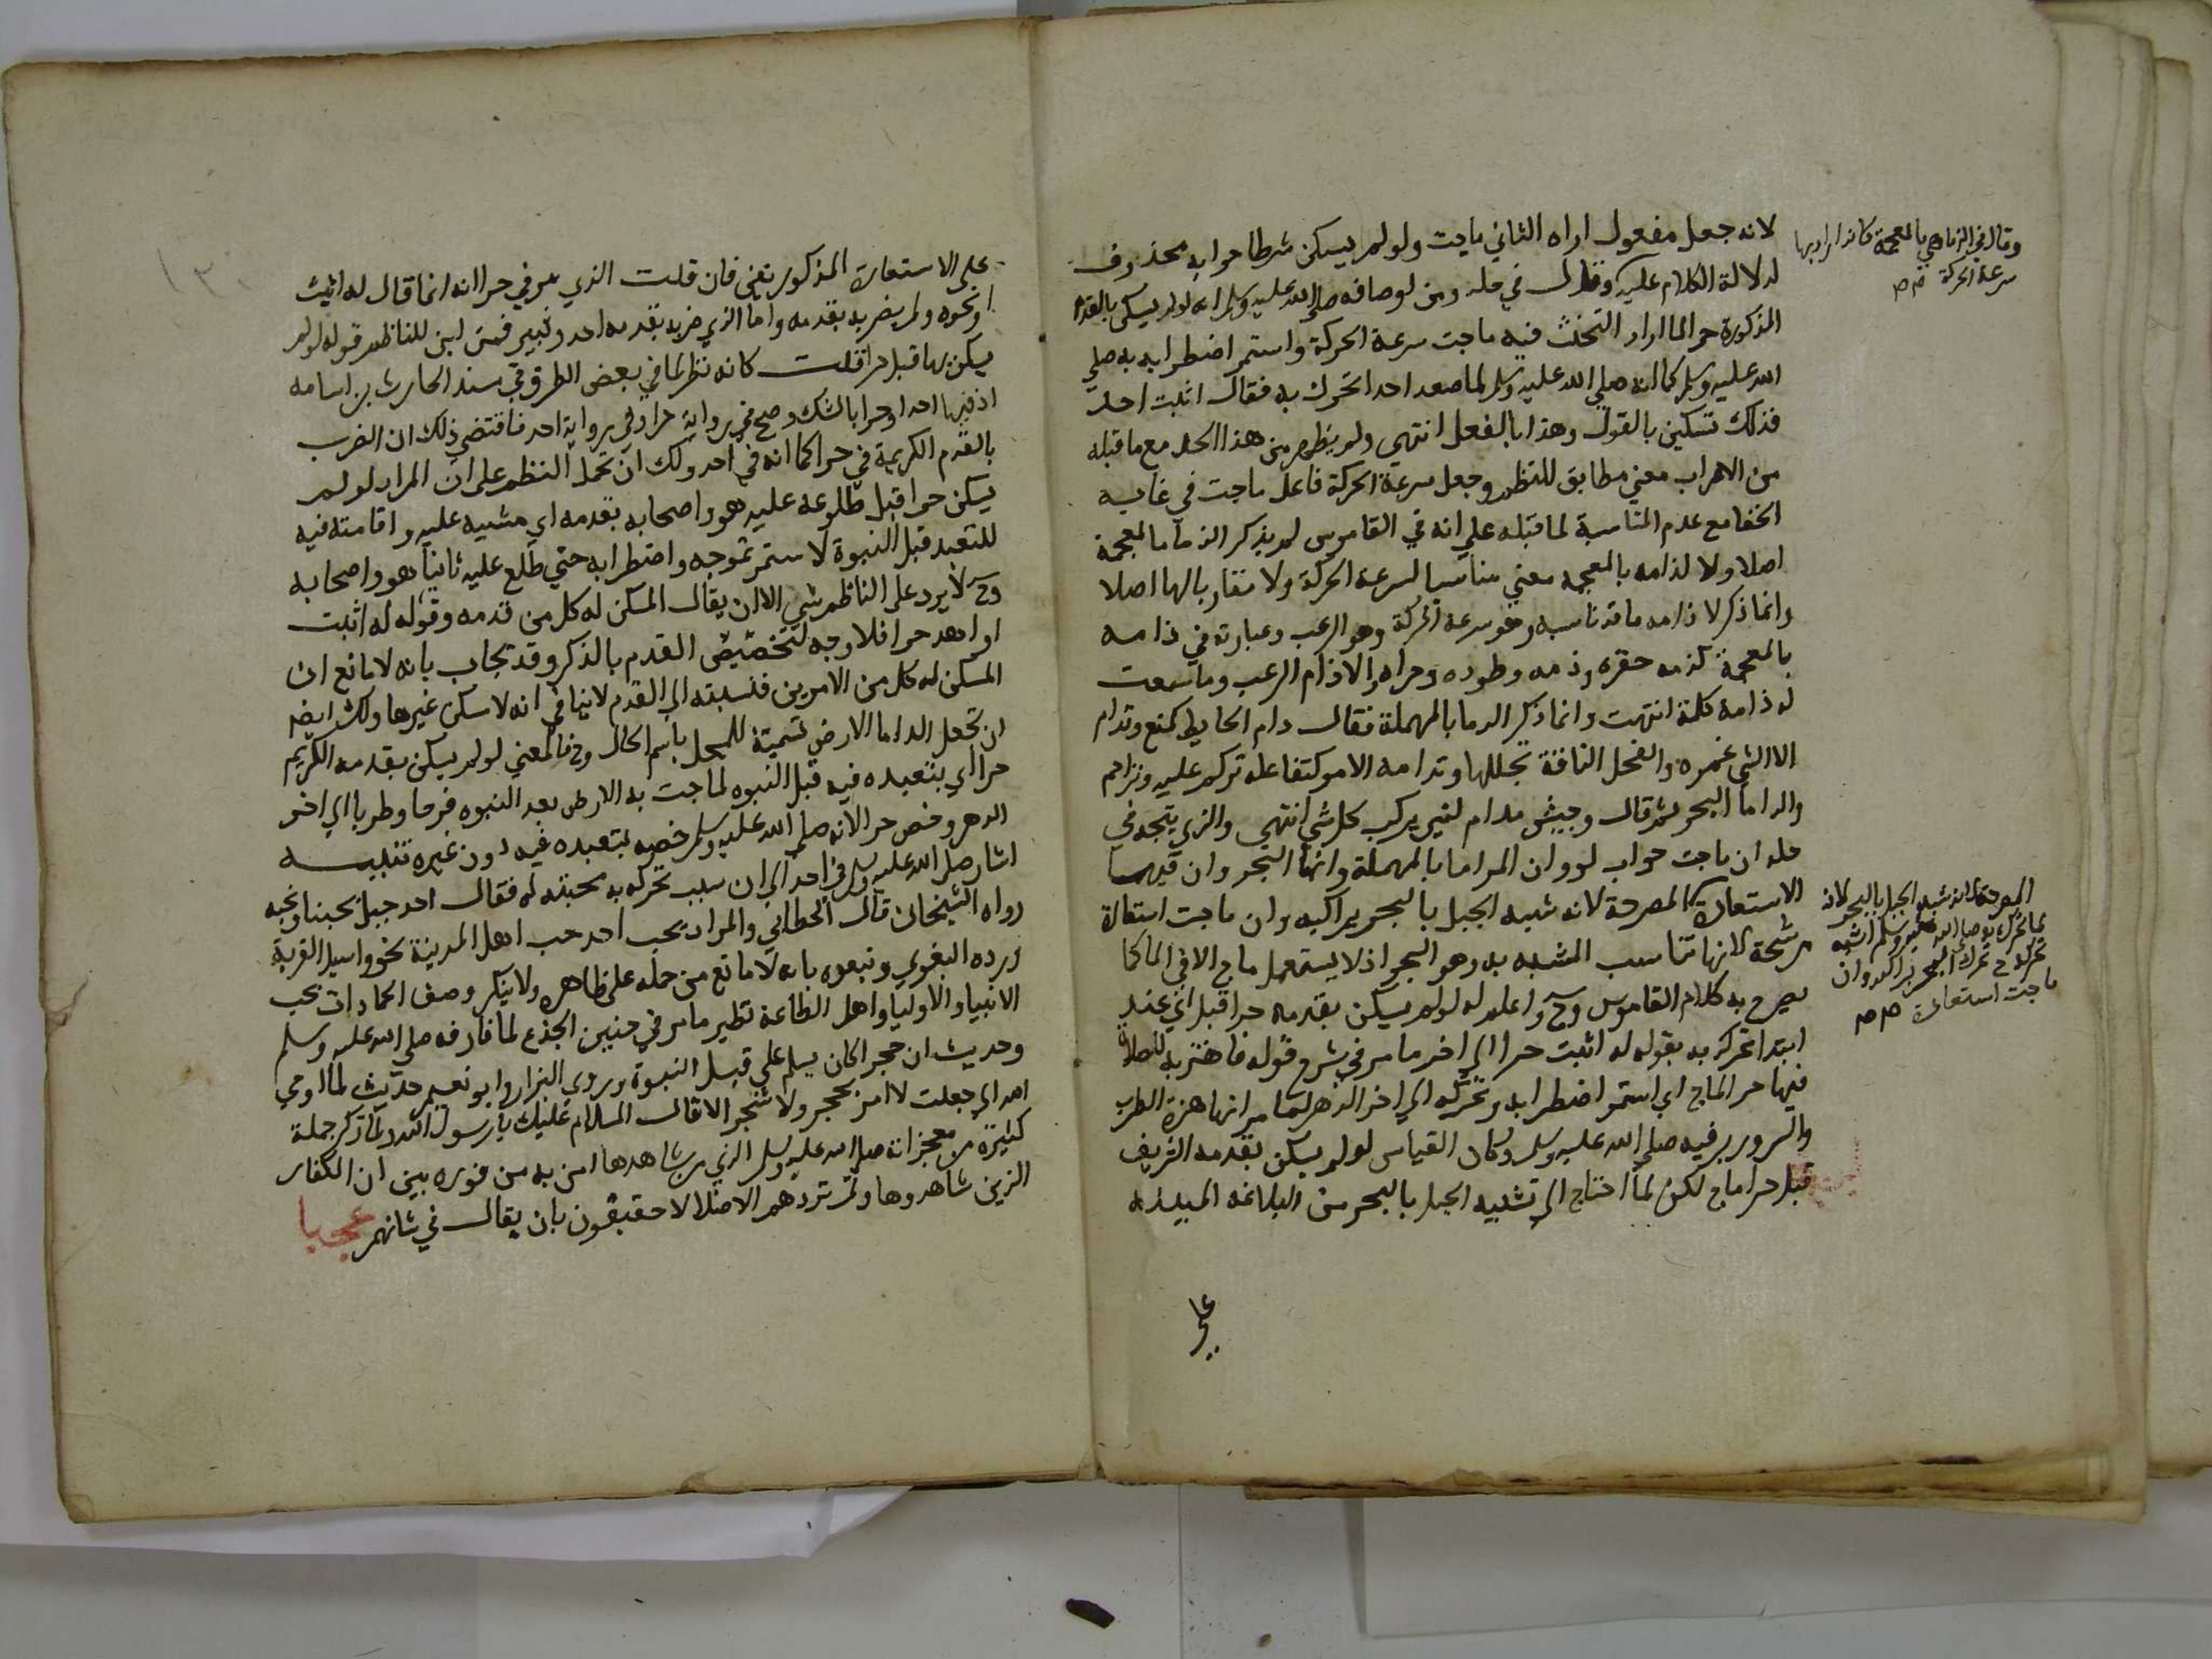 لانه جعل مفعول اراه الثاني ماجت ولو لم يسكن شرطا جوابه محذوف
لدلالة الكلام عليه وقال في حله ومن اوصافه صلى الله عليه وسلم انه لو لم يسكن بالقدم
المذكورة حرا لما اراد التحنث فيه ماجت سرعة الحركة واستمر اضطرابه به صلي
الله عليه وسلم كما انه صلي الله عليه وسلم لما صعد احدا تحرك به فقال اثبت احد
فذلك تسكين بالقول وهذا بالفعل انتهي ولم يظهر من هذا الحل مع ما قبله
من الاعراب معني مطابق للنظم وجعل سرعة الحركة فاعل ماجت في غاية
الخفا مع عدم المناسبة لما قبله علي انه في القاموس لم يذكر الذاما بالمعجمة
اصلا ولا لذامه بالمعجمه معني مناسبا لسرعة الحركة ولا مقاربا لها اصلا
وانما ذكر لاذامه ما قد يناسبه وهو سرعة الحركة وهو الرعب وعبارته في ذامه
بالمعجمة كذمه حقره وذمه وطرده وحزاه والاذام الرعب وما سمعت
له ذامة كلمة انتهت وانما ذكر الدما بالمهملة فقال دام الحايط كمنع وتدام
الماالشي غمره والفحل الناقة تجللها وتدامه الامر كتفاعله تركم عليه وتزاحم
والداما البحر ثم قال وجيش مدام لنيير يركب كل شي انتهي والذي يتجه في
حله ان ماجت جواب لو وان الداما بالمهملة وانها البحر وان فيها
الاستعارة المصرحة لانه شبه الجبل بالبحر
مرشحة لانها تناسب المشبه به وهو البحر اذ لا يستعمل ماج الا في الما كما
يصرح به كلام القاموس وح واعلم انه لو لم يسكن بقدمه حرا قبل اي عند
ابتدا تحركه به بقوله له اثبت حرا الي اخر ما مر في شرح قوله فاهتز به للصلاة
فيها حرا لماج اي استمر اضطرابه وتحركه الي اخر الدهر لما مر انها هزة الطرب
والسرور برقيه صلي الله عليه وسلم وكان القياس لو لم يسكن بقدمه الشريف
قبل حرا ماج لكن لما احتاج الي تشبيه الجبل بالبحر من البلاغة
علي
وقال في الذما هي بالمعجمة كانه اراد بها
سرعة الحركة صح
المصرحة لانه شبه الجبل بالبحر لانه
لما تحرك به صلى الله عليه وسلم اشبه
تحركه ح تحرك البحر براكبه وان
ماجت استعارة صح
١٣٠
علي الاستعارة المذكورة تغي فان قلت الذي مر في حرا انه انما قال له اثبت
او نحوه ولم يضربه بقدمه واما الذي ضربه بقدمه احد وثبير فمن اين للناظم قوله لو لم
يسكن بها قبل حرا قلت كانه نظر لما في بعض الطرق في سند الحارث بن اسامة
اذ فيها احدا وحرا بالشك وصح في رواية حرا وفي رواية احد فاقتضي ذلك ان الضرب
بالقدم الكريمة في حرا كما انه في احد ولك ان تحمل النظم علي ان المراد لو لم
يسكن حرا قبل طلوعه عليه هو واصحابه بقدمه اي مشيه عليه واقامته فيه
للتعبد قبل النبوة لاستمر تموجه واضطرابه حتي طلع عليه ثانيا هو واصحابه
وح لا يرد علي الناظم شي الا ان يقال المسكن له كل من قدمه وقوله له اثبت
او اهد حرا فلا وجه لتخصيص القدم بالذكر وقد يجاب بانه لا مانع ان
المسكن له كل من الامرين فنسبته الي القدم لا ينافي انه لا سكن غيرها ولك ايضا
ان تجعل الداما الارض تسمية للمحل باسم الحال وح فالمعني لو لم يسكن بقدمه الكريم
حرا اي بتعبده فيه قبل النبوه لماجت به الارض بعد النبوه فرحا وطربا الي اخر
الدهر وخص حرا لانه صلي الله عليه وسلم خصه بتعبده فيه دون غيره تنبيه
اشار صلي الله عليه وسلم في احد الي ان سبب تحركه به محبته له فقال احد جبل يحبنا ونحبه
رواه الشيخان قال الخطابي والمراد يحب احد حب اهل المدينة نحو واسيل القرية
ورده البغوي وتبعوه بانه لا مانع من حمله علي ظاهره ولا ينكر وصف الجمادات بحب
الانبيا والاوليا واهل الطاعة نظير ما مر في حنين الجذع لما فارقه صلي الله عليه وسلم
وحديث ان حجرا كان يسلم علي قبل النبوة وروي البزار وابو نعيم حديث لما اوحي
الله الي جعلت لا امر بحجر ولا شجر الا قال السلام عليك يا رسول الله ولما ذكر جملة
كثيرة من معجزاته صلي الله عليه وسلم الذي من شاهدها امن به من فوره بين ان الكفار
الذين شاهدوها ولم تزدهم الا ضلالا حقيقون بان يقال في شانهم عجبا